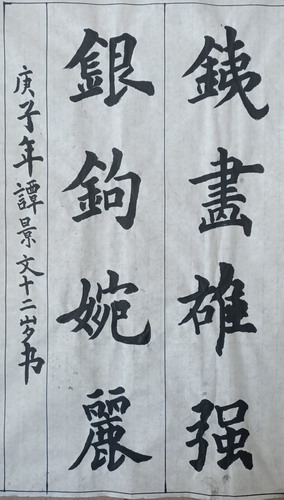 銕畫雄强
銀鉤婉麗
庚子年譚景文十二岁书